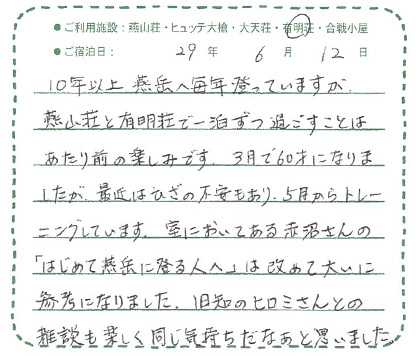 ●ご利用施設：燕山荘・ヒュッテ大槍・大天荘・有明荘・合戦小屋
●ご宿泊日： 29 年 6 月 12 日
10年以上 燕岳へ毎年登っていますが、
燕山荘と有明荘で一泊ずつ過ごすことは
あたり前の楽しみです。3月で60才になりま
したが、最近はひざの不安もあり、5月からトレー
ニングしています。室においてある赤沼さんの
「はじめて燕岳に登る人へ」は改めて大いに
参考になりました。旧知のヒロミさんとの
雑談も楽しく同じ気持ちだなぁと思いました